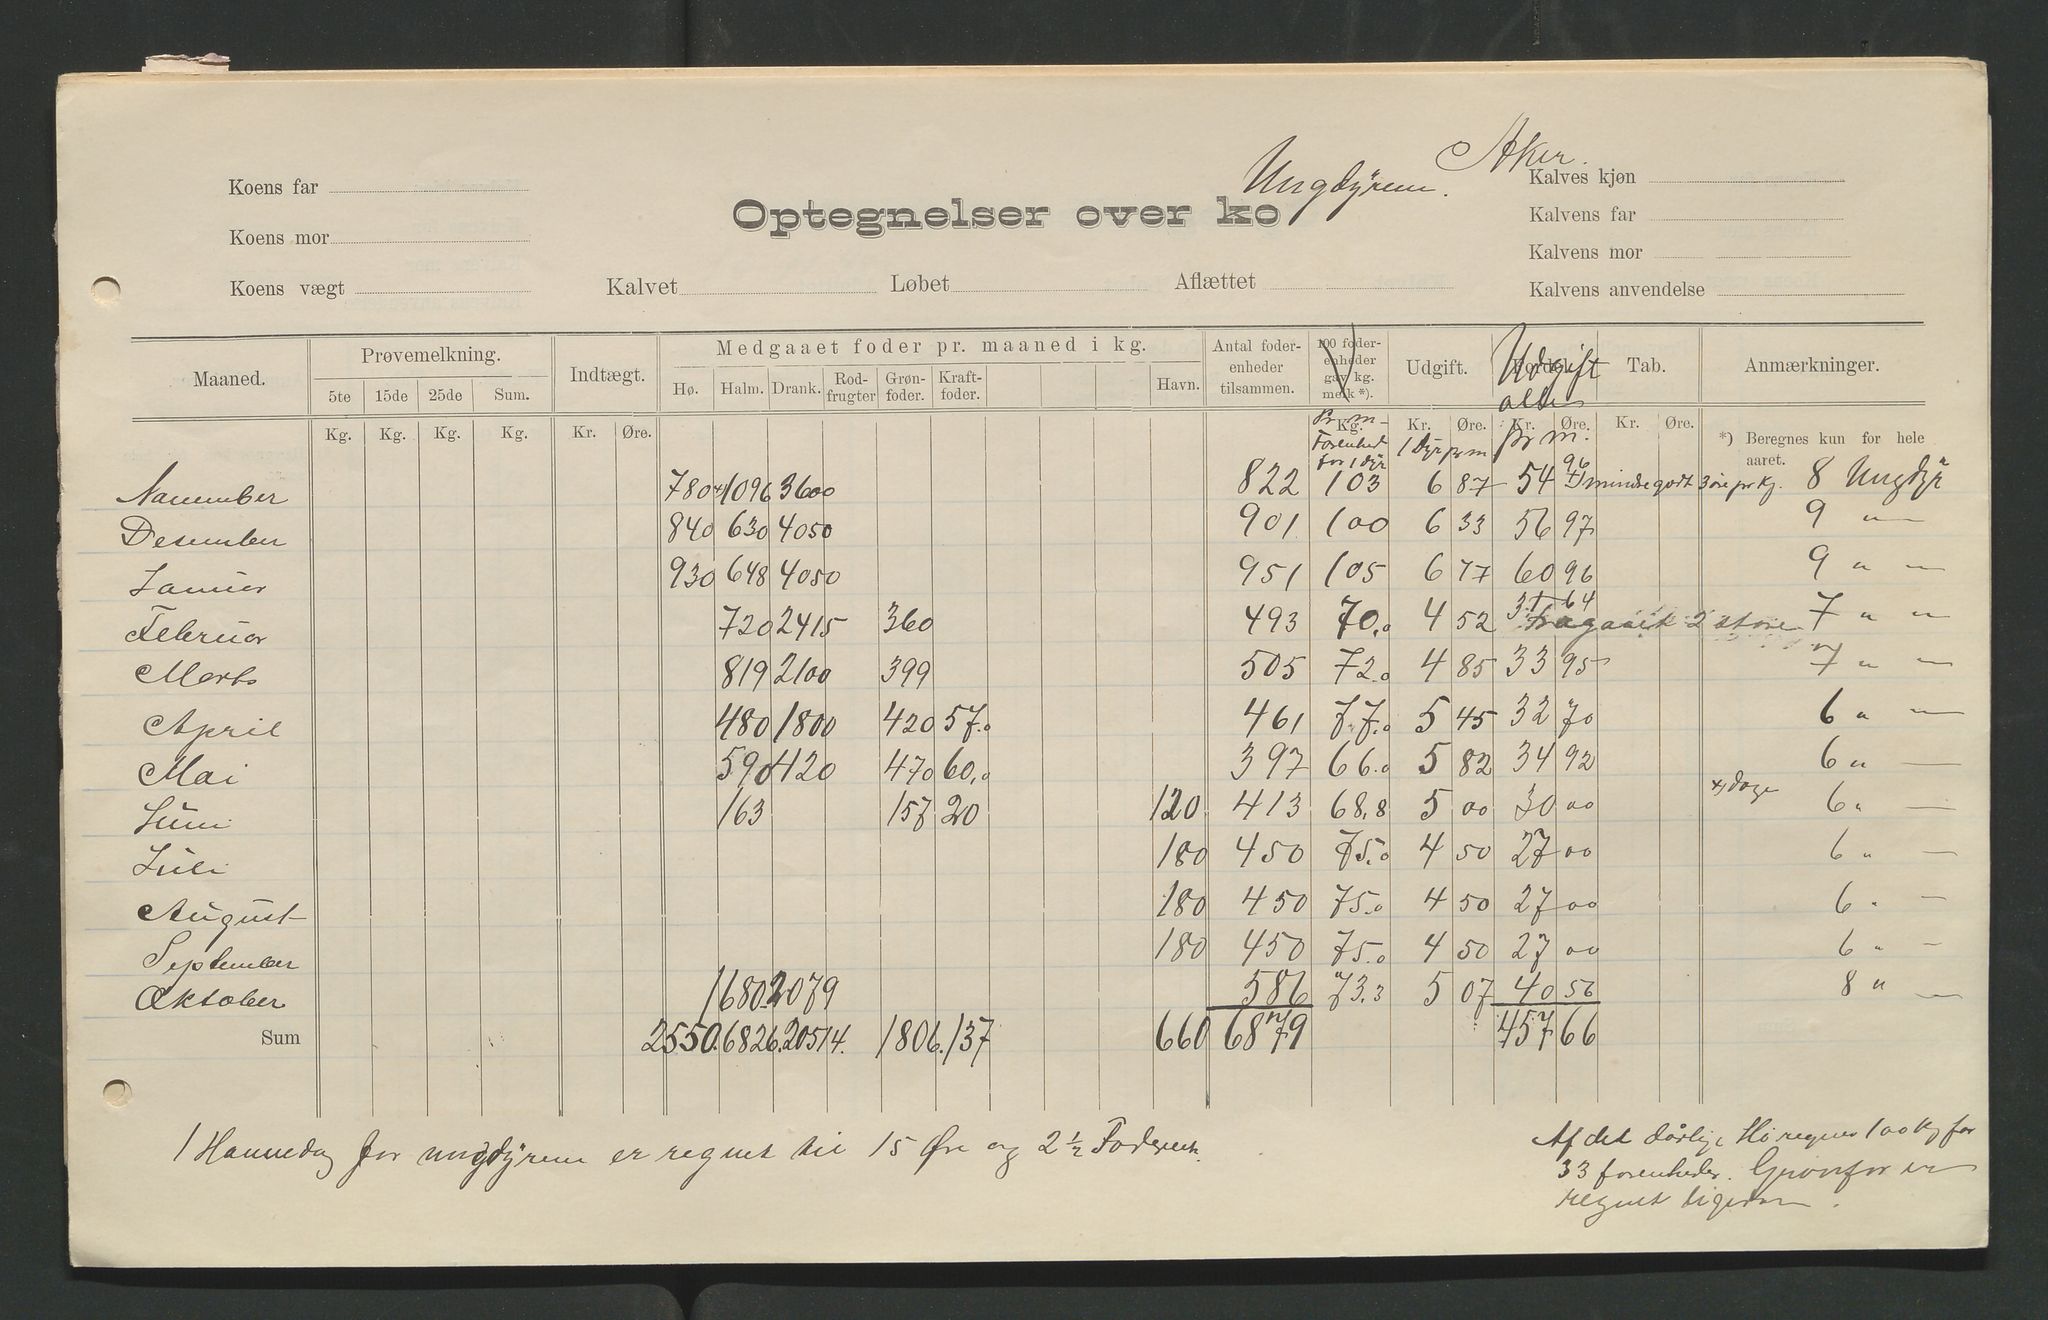 Aker.
Ungdyrene.
Koens far
Koens mor
Koens vægt
Optegnelser over ko
Kalvet Løbet Aflættet
Kalves kjøn
Kalvens far
Kalvens mor
Kalvens anvendelse
Maaned. Prøvemelkning. Indtægt. Medgaaet foder pr. maaned i kg. Antal foder-enheder tilsammen. 100 foder-enheder gav kg. melk *). Udgift. Udgift alle Tab. Anmærkninger.
5te 15de 25de Sum. Hø. Halm. Drank. Rod-frugter Grøn-foder. Kraft-foder. Havn.
Kg. Kg. Kg. Kg. Kr. Øre. Kg. Kr. Øre. Kr. Øre. Kr. Øre. *) Beregnes kun for hele aaret.
Pr m Forenhed for 1 dyr 1 Dyr pr m pr m.
November 780 1096 3600 822 103 6 87 54 96 mindre godt 3 øre pr Kg. 8 Ungdyr
Desember 840 630 4050 901 100 6 33 56 97 9 " —
Januar 930 648 4050 951 105 6 77 60 96 9 " —
Februar 720 2415 360 493 70,0 4 52 31 64 fragaaet 2 store 7 " —
Marts 819 2100 399 505 72.0 4 85 33 95 7 " —
April 480 1800 420 57.0 461 77.0 5 45 32 70 6 " —
Mai 590 420 470 60,0 397 66.0 5 82 34 92 6 " —
Juni 163 157 20 120 413 68,8 5 00 30 00 x) dage 6 " —
Juli 180 450 75.0 4 50 27 00 6 " —
August 180 450 75.0 4 50 27 00 6 " —
September 180 450 75.0 4 50 27 00 6 " —
Oktober 1680 2079 586 73,3 5 07 40 56 8 " —
Sum 2550. 6826. 20514. 1806. 137 660 6879 457 66
1 Havnedag for ungdyrene er regnet til 15 Øre og 2 1/2 Foderenh.
Af det dårlige Hø regnes 100 Kg for
33 forenheder. Grønfor er
regnet ligedan.